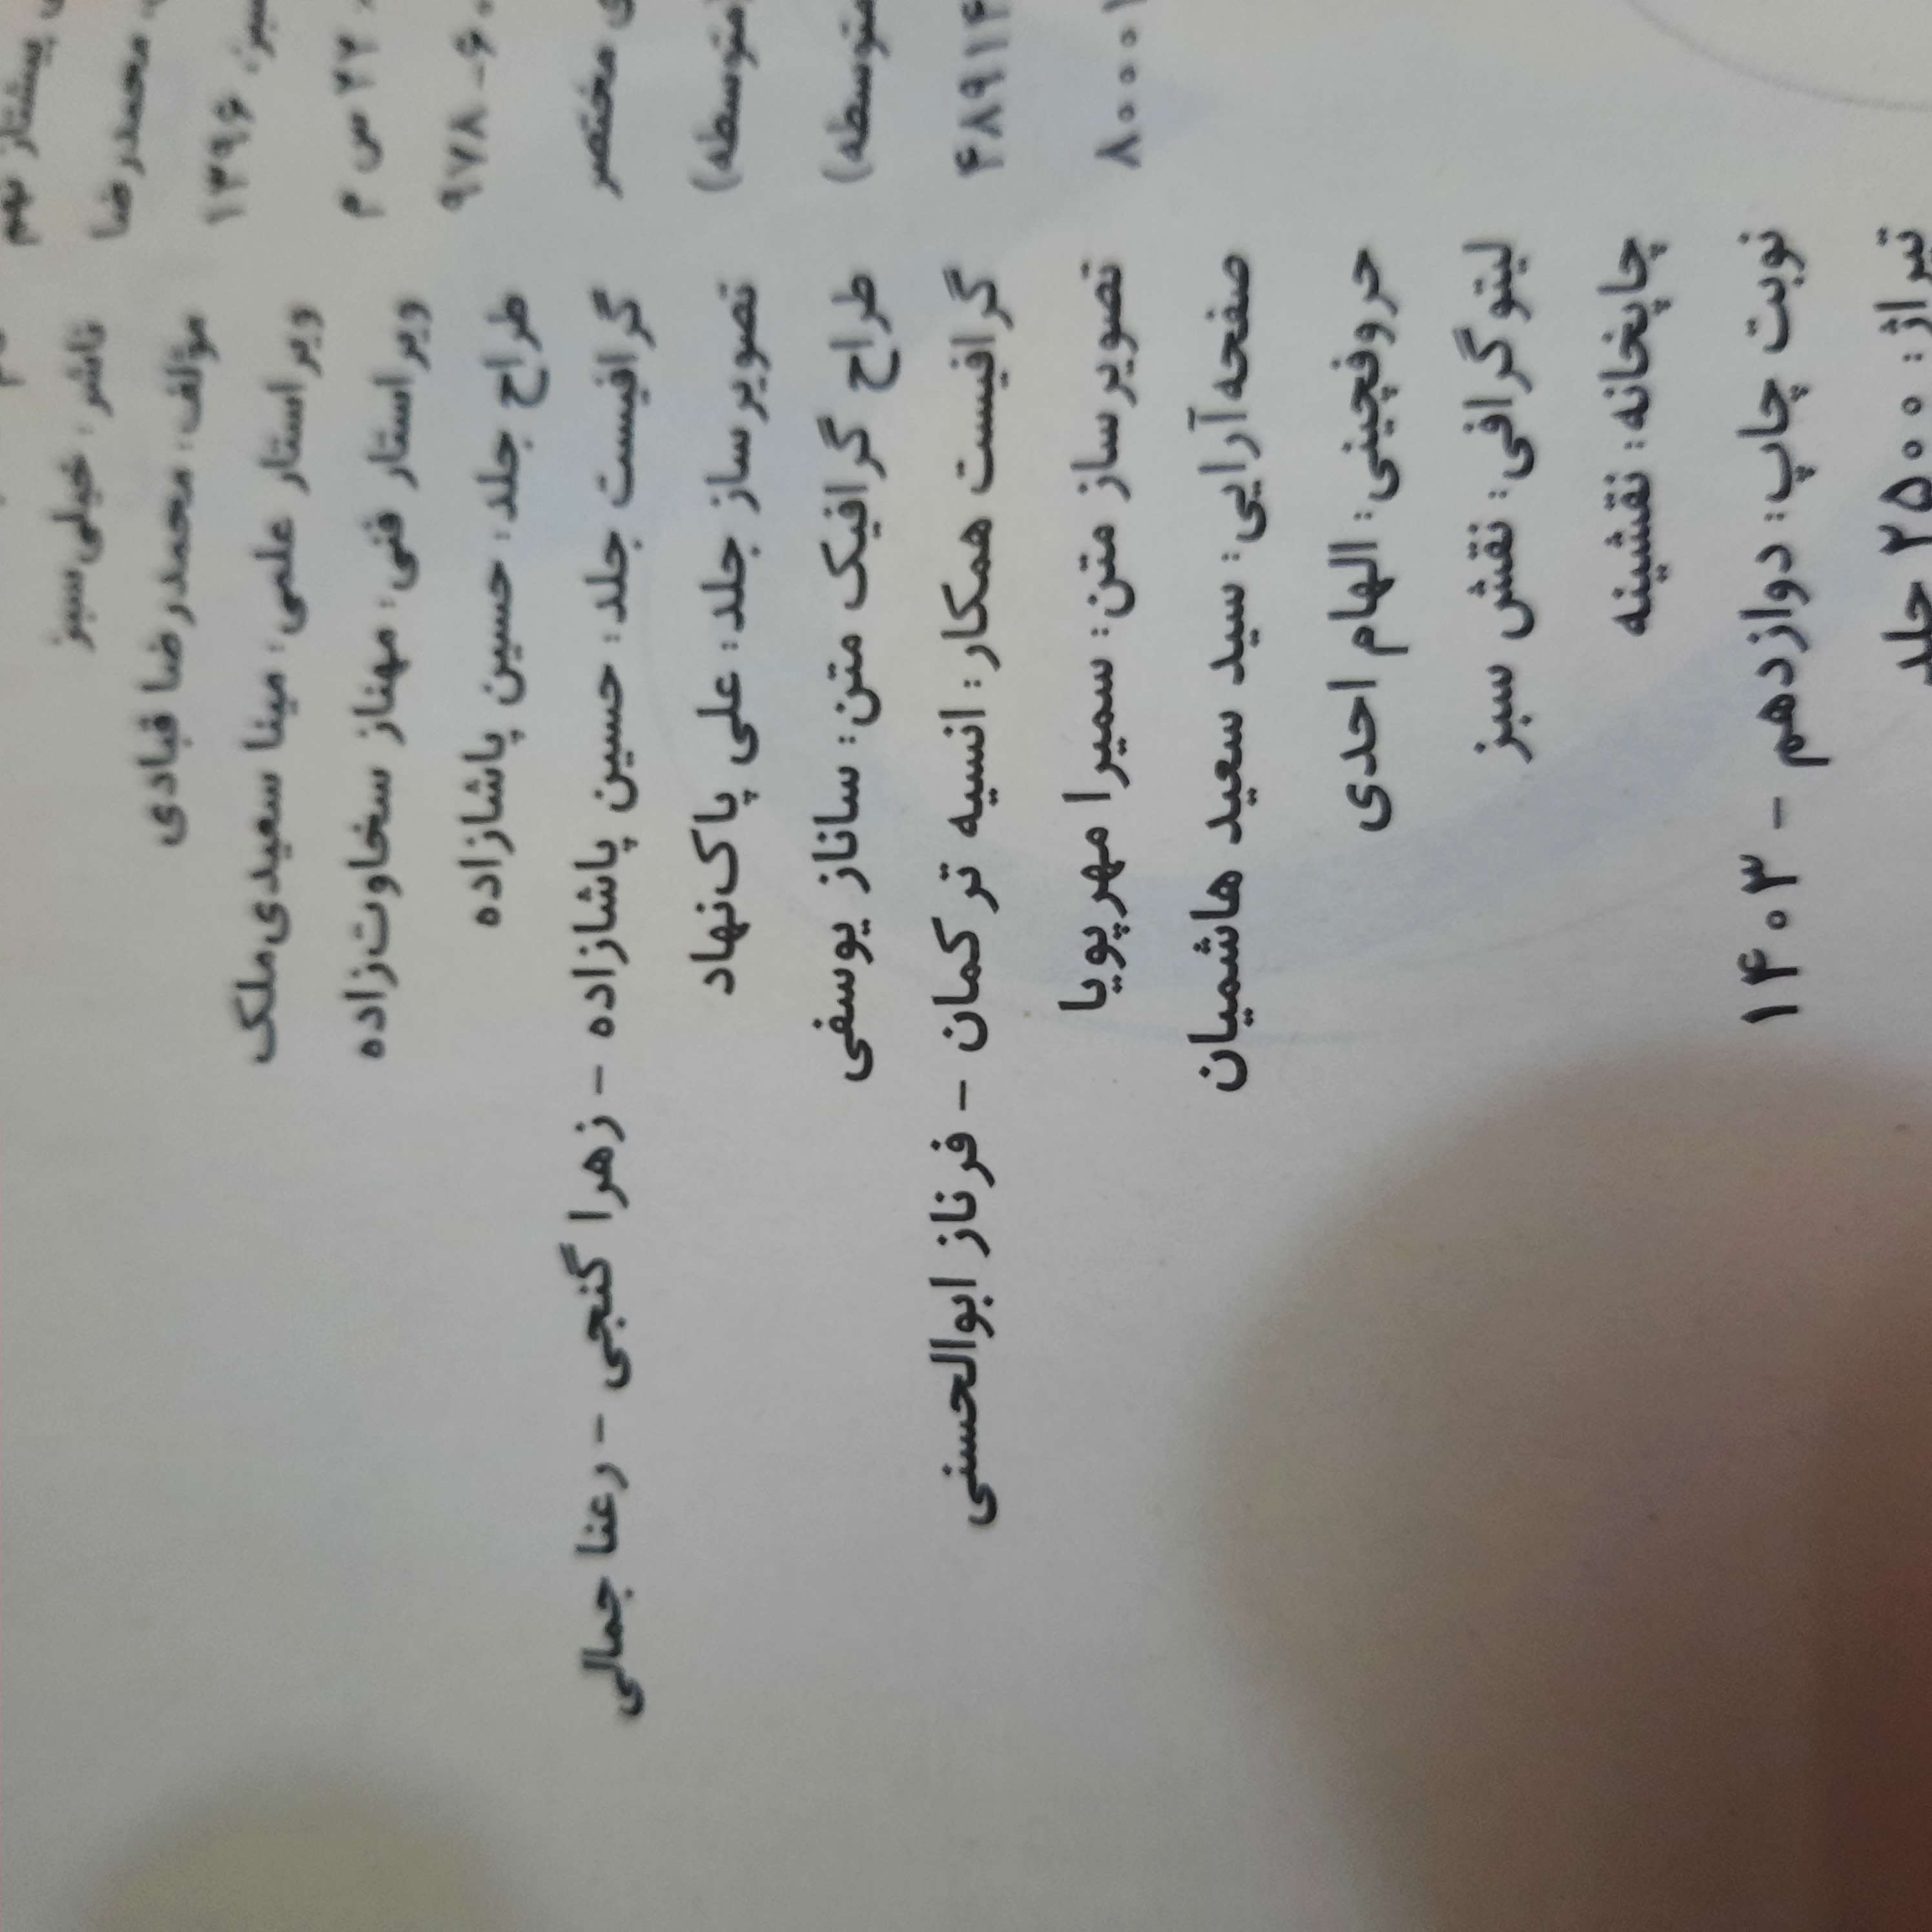 پیشتاز نهم
محمدرضا
۱۳۹۶
۲۲ س م
۹۷۸-۶
مختصر
(متوسطه)
(متوسطه)
۴۸۹۱۴
۸۰۰۰۱
ناشر: خیلی سبز
مؤلف: محمدرضا قبادی
ویراستار علمی: مینا سعیدی‌ملک
ویراستار فنی: مهناز سخاوت‌زاده
طراح جلد: حسین پاشازاده
گرافیست جلد: حسین پاشازاده - زهرا گنجی - رعنا جمالی
تصویرساز جلد: علی پاک‌نهاد
طراح گرافیک متن: ساناز یوسفی
گرافیست همکار: انسیه ترکمان - فرناز ابوالحسنی
تصویرساز متن: سمیرا مهرپویا
صفحه‌آرایی: سید سعید هاشمیان
حروفچینی: الهام احدی
لیتوگرافی: نقش سبز
چاپخانه: نقشینه
نوبت چاپ: دوازدهم - ۱۴۰۳
تیراژ: ۲۵۰۰ جلد